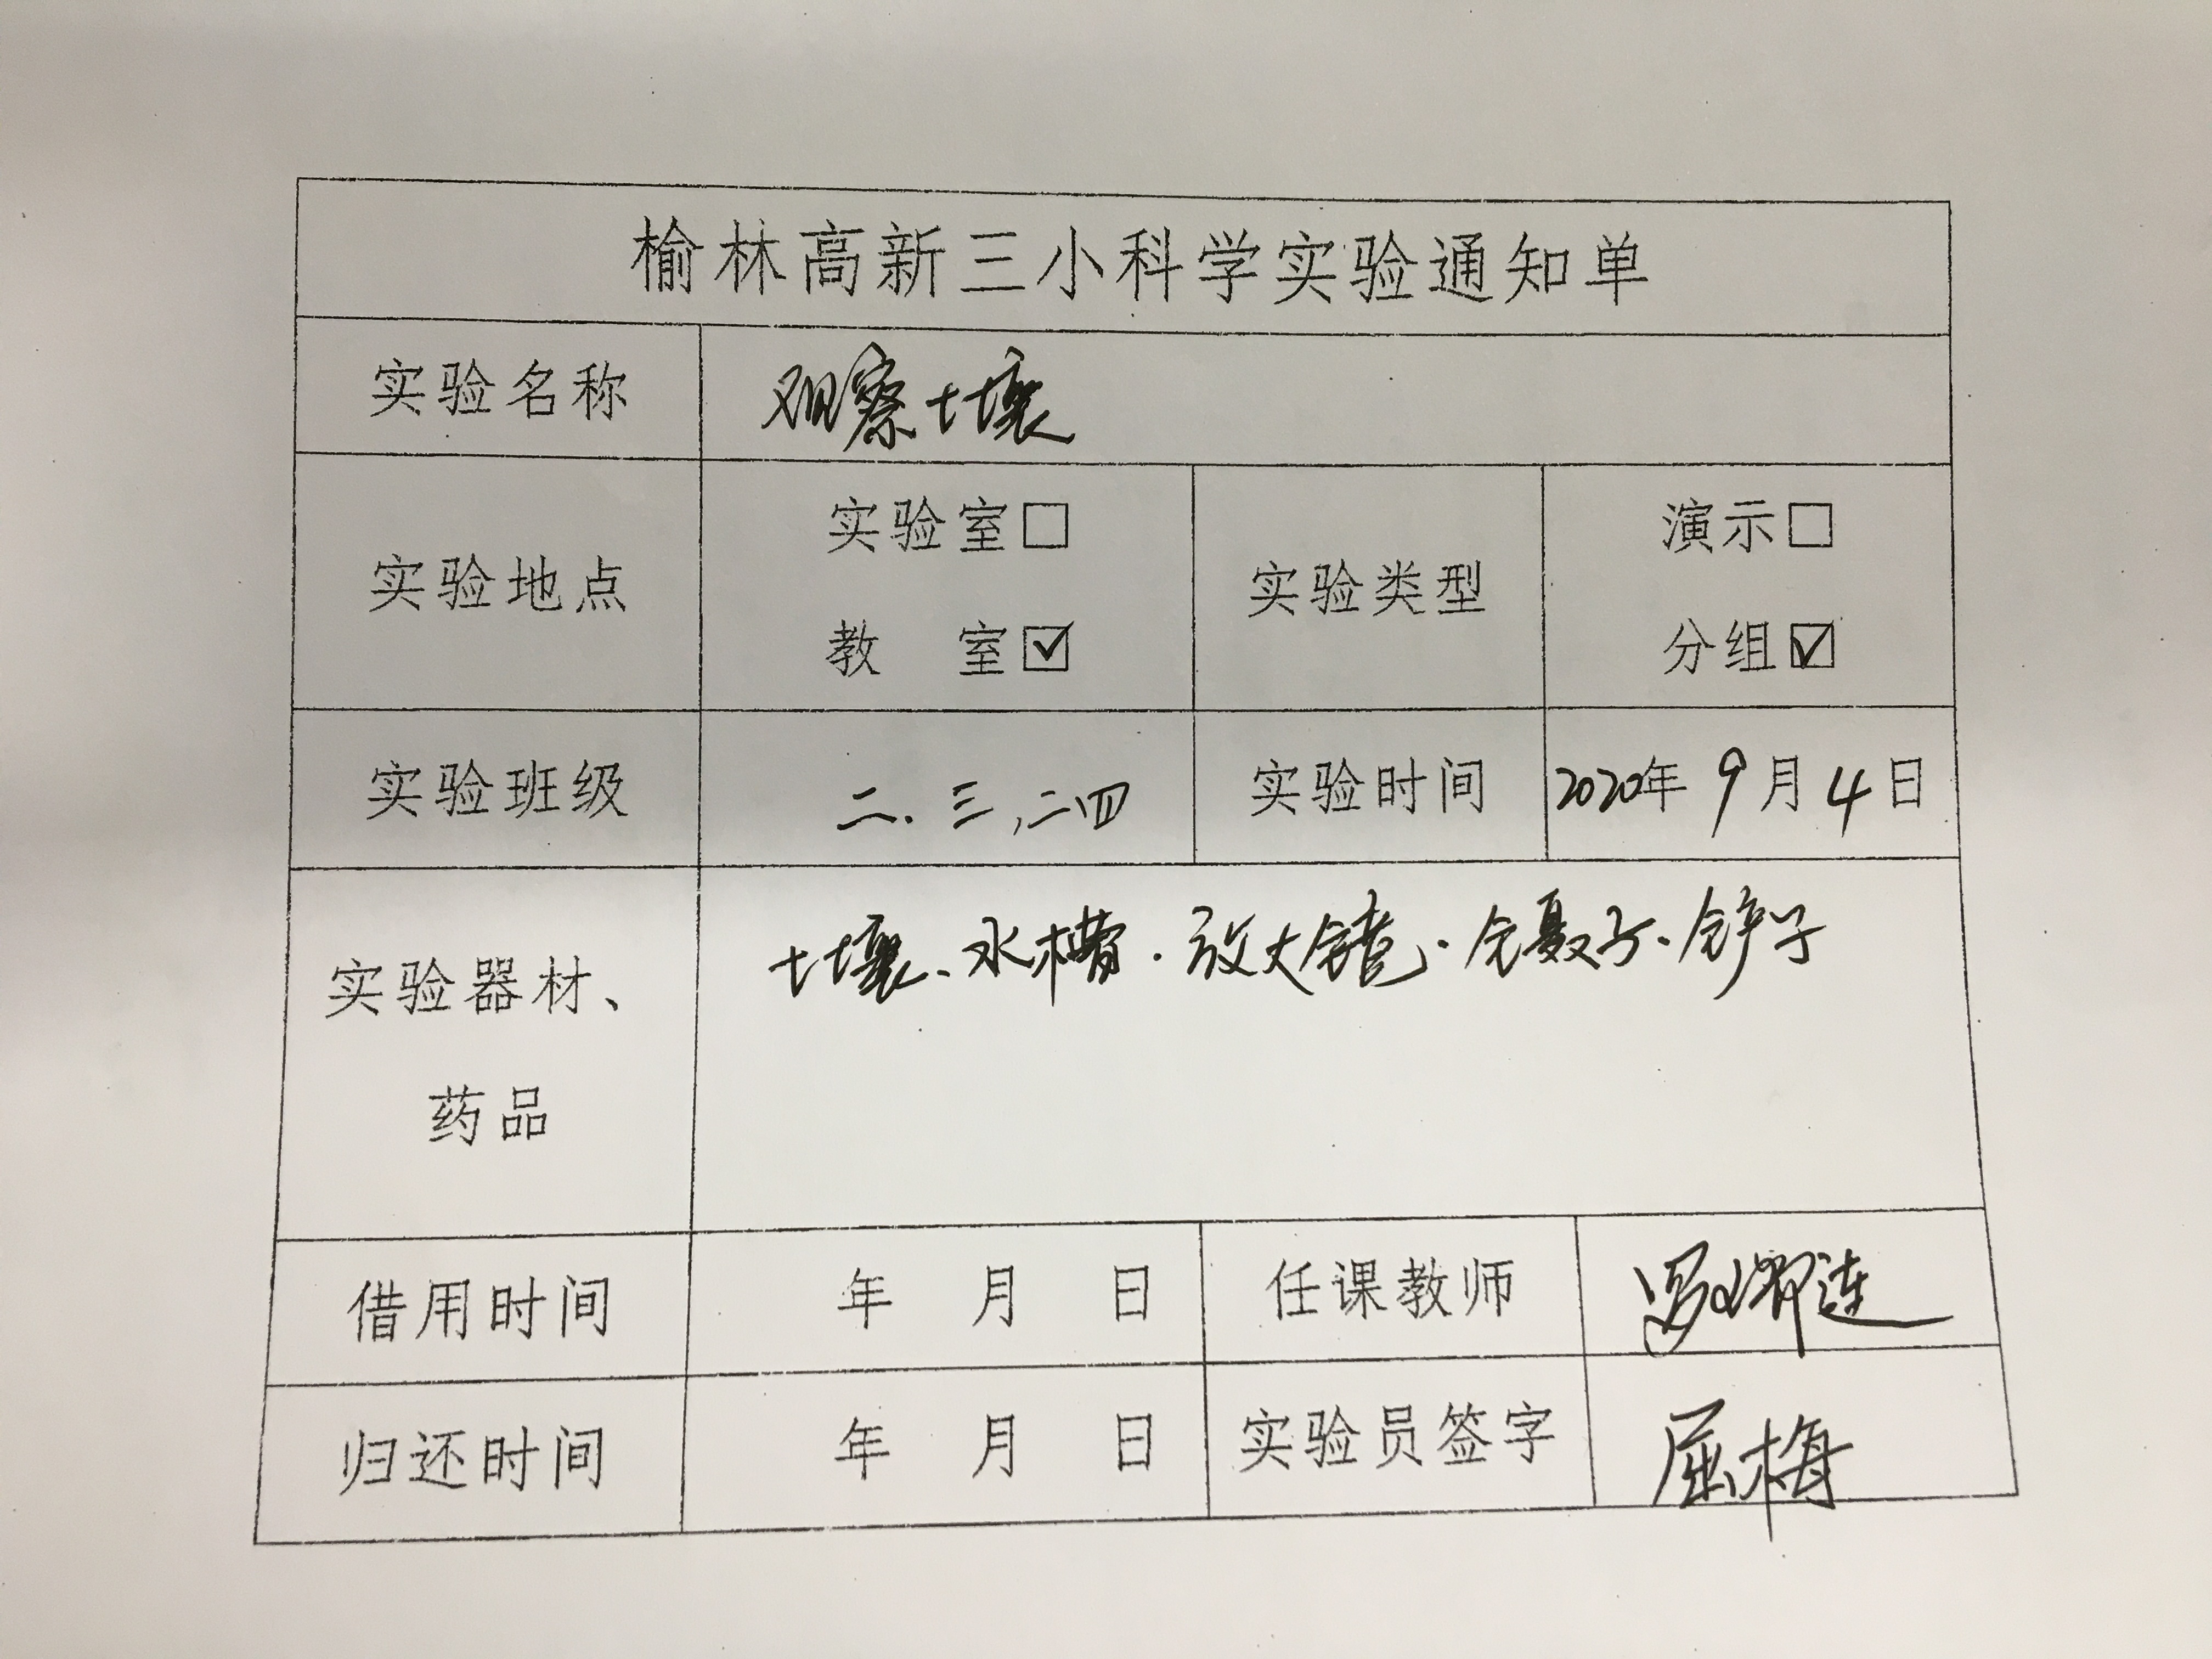 榆林高新三小科学实验通知单
实验名称 观察土壤
实验地点 实验室☐ 教 室☑ 实验类型 演示☐ 分组☑
实验班级 二.三,二四 实验时间 2020年9月4日
实验器材、药品 土壤、水槽.放大镜.镊子.铲子
借用时间 年 月 日 任课教师
归还时间 年 月 日 实验员签字 屈梅